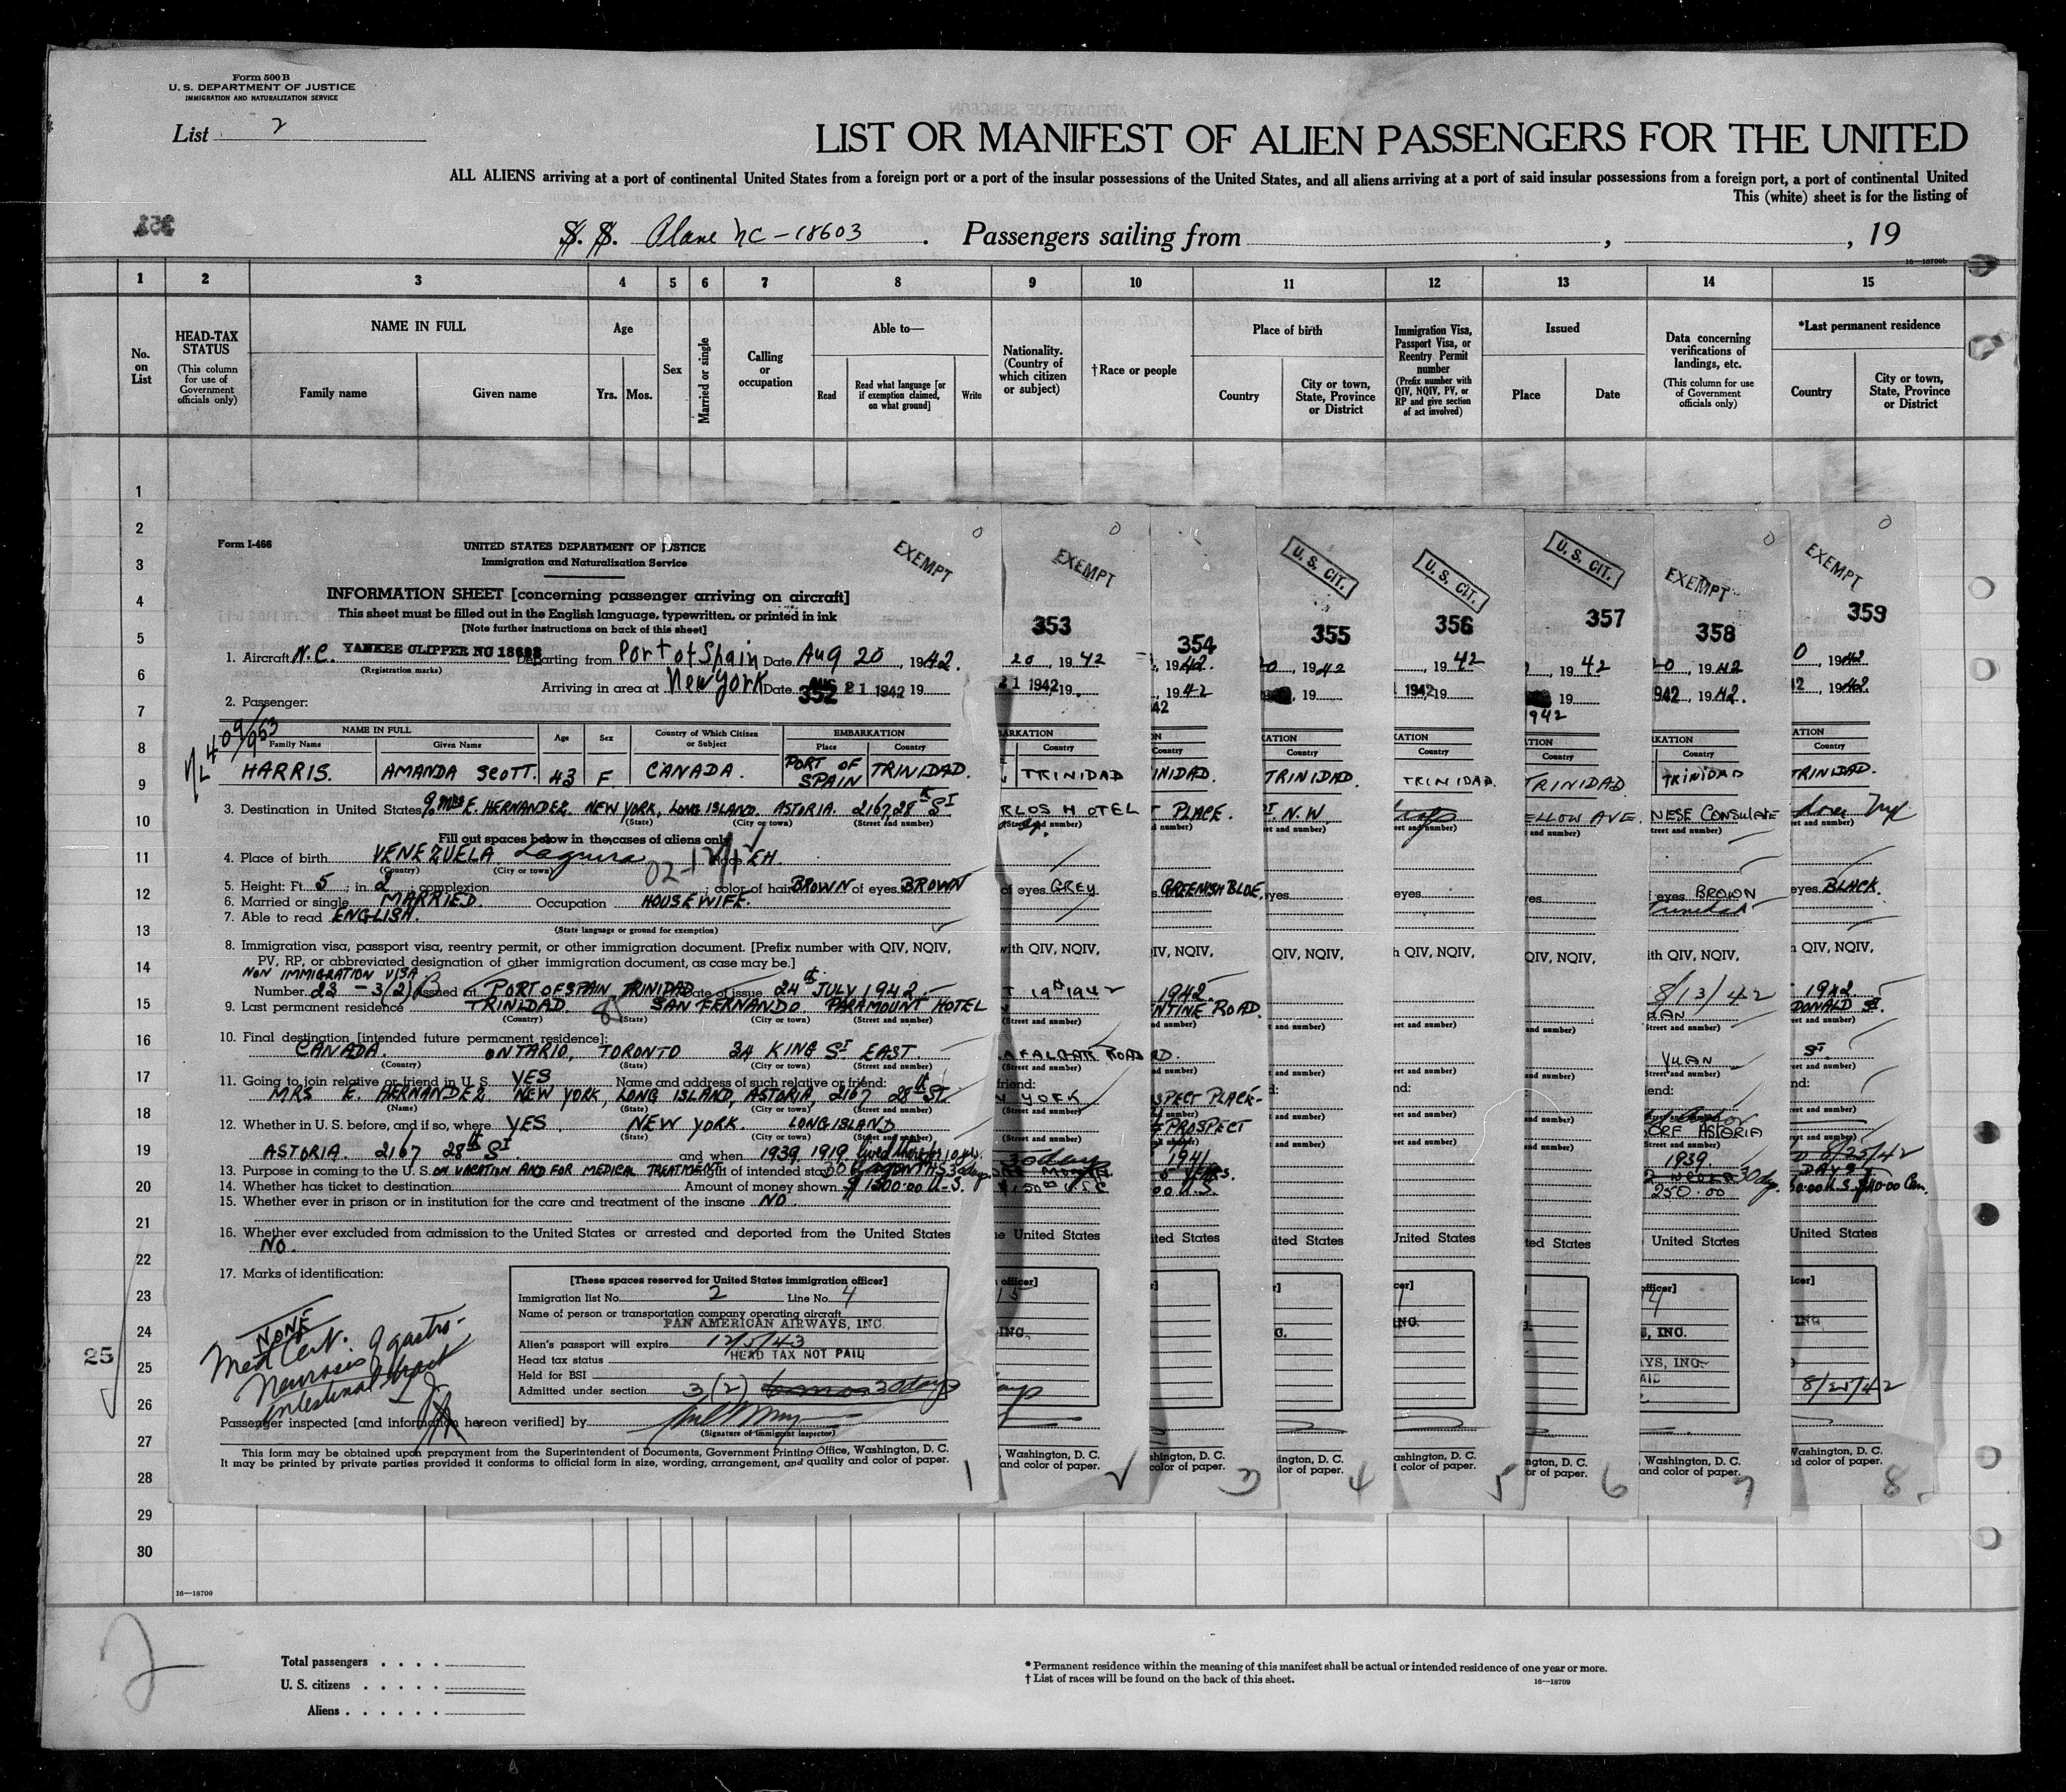 Form 500 B
U. S. DEPARTMENT OF JUSTICE
IMMIGRATION AND NATURALIZATION SERVICE
List 2
LIST OR MANIFEST OF ALIEN PASSENGERS FOR THE UNITED
ALL ALIENS arriving at a port of continental United States from a foreign port or a port of the insular possessions of the United States, and all aliens arriving at a port of said insular possessions from a foreign port, a port of continental United
This (white) sheet is for the listing of
S. S. Plane NC-18603. Passengers sailing from , , 19
16—18709b
1 2 3 4 5 6 7 8 9 10 11 12 13 14 15
No. on List
HEAD-TAX STATUS
(This column for use of Government officials only)
NAME IN FULL
Family name Given name
Age
Yrs. Mos.
Sex
Married or single
Calling or occupation
Able to—
Read Read what language [or if exemption claimed, on what ground] Write
Nationality. (Country of which citizen or subject)
†Race or people
Place of birth
Country City or town, State, Province or District
Immigration Visa, Passport Visa, or Reentry Permit number
(Prefix number with QIV, NQIV, PV, or RP and give section of act involved)
Issued
Place Date
Data concerning verifications of landings, etc.
(This column for use of Government officials only)
*Last permanent residence
Country City or town, State, Province or District
1
2
3
4
5
6
7
8
9
10
11
12
13
14
15
16
17
18
19
20
21
22
23
24
25
26
27
28
29
30
25
Form I-466
UNITED STATES DEPARTMENT OF JUSTICE
Immigration and Naturalization Service
EXEMPT
INFORMATION SHEET [concerning passenger arriving on aircraft]
This sheet must be filled out in the English language, typewritten, or printed in ink
[Note further instructions on back of this sheet]
1. Aircraft N.C. YANKEE CLIPPER NC 18603 Departing from Port of Spain Date Aug 20, 1942.
(Registration marks)
Arriving in area at New York Date AUG 21 1942 19
352
2. Passenger:
NAME IN FULL Age Sex Country of Which Citizen or Subject EMBARKATION
Family Name Given Name Place Country
HARRIS. AMANDA SCOTT. 43 F. CANADA. PORT OF SPAIN TRINIDAD.
3. Destination in United States % Mrs E. HERNANDEZ. NEW YORK, LONG ISLAND. ASTORIA. 2167, 28th ST
(State) (City or town) (Street and number)
Fill out spaces below in the cases of aliens only
4. Place of birth VENEZUELA Laguira Race EH
(Country) (City or town)
5. Height: Ft. 5; in 2; complexion ; color of hair BROWN of eyes BROWN
6. Married or single MARRIED. Occupation HOUSEWIFE.
7. Able to read ENGLISH.
(State language or ground for exemption)
8. Immigration visa, passport visa, reentry permit, or other immigration document. [Prefix number with QIV, NQIV,
PV, RP, or abbreviated designation of other immigration document, as case may be.]
NON IMMIGRATION VISA
Number 23 - 3(2) Issued at PORT OF SPAIN TRINIDAD Date of issue 24th JULY 1942.
9. Last permanent residence TRINIDAD. SAN FERNANDO. PARAMOUNT HOTEL
(Country) (State) (City or town) (Street and number)
10. Final destination [intended future permanent residence]:
CANADA. ONTARIO, TORONTO 34 KING ST EAST.
(Country) (State) (City or town) (Street and number)
11. Going to join relative or friend in U. S. YES Name and address of such relative or friend:
MRS E. HERNANDEZ NEW YORK, LONG ISLAND, ASTORIA, 2167 28th ST.
(Name) (State) (City or town) (Street and number)
12. Whether in U. S. before, and if so, where YES. NEW YORK. LONG ISLAND
(State) (City or town) (Street and number)
ASTORIA. 2167 28th ST and when 1939, 1919
13. Purpose in coming to the U. S. ON VACATION AND FOR MEDICAL TREATMENT Length of intended stay 6 MONTHS 30 days
14. Whether has ticket to destination Amount of money shown $1500.00 U-S.
15. Whether ever in prison or in institution for the care and treatment of the insane NO.
16. Whether ever excluded from admission to the United States or arrested and deported from the United States
NO.
17. Marks of identification:
NONE
Med Cert.
Neurosis of gastro-
intestinal tract
[These spaces reserved for United States immigration officer]
Immigration list No. 2 Line No. 4
Name of person or transportation company operating aircraft
PAN AMERICAN AIRWAYS, INC.
Alien's passport will expire 12/5/43
Head tax status HEAD TAX NOT PAID
Held for BSI
Admitted under section 3(2) 6 mos 30 days
Passenger inspected [and information hereon verified] by
(Signature of immigrant inspector)
This form may be obtained upon prepayment from the Superintendent of Documents, Government Printing Office, Washington, D. C.
It may be printed by private parties provided it conforms to official form in size, wording, arrangement, and quality and color of paper.
1
EXEMPT
353
20, 1942
21 1942 19
Country
TRINIDAD
RLOS HOTEL
of eyes GREY
with QIV, NQIV,
19th 1942
AFALGAR ROAD
friend:
YORK
United States
officer]
15
INC.
Washington, D. C.
and color of paper.
2
354
, 1942.
, 1942
Country
TRINIDAD.
PLACE.
GREENISH BLUE.
1942.
NTINE ROAD.
SPECT PLACE-
PROSPECT
1941
YEARS.
00 U.S.
3
U. S. CIT.
355
20, 1942
, 19
TRINIDAD.
N.W.
QIV, NQIV,
United States
4
U. S. CIT.
356
, 1942
1942 19
TRINIDAD.
eyes
QIV, NQIV,
United States
5
U. S. CIT.
357
, 1942
19
1942
TRINIDAD.
ELLOW AVE.
QIV, NQIV,
ted States
6
EXEMPT
358
20, 1942
1942, 1942.
TRINIDAD
NESE CONSULATE
eyes BROWN
Trinidad
8/13/42
YUAN
ORF ASTORIA
1939.
30 dys.
250.00
United States
officer]
INC.
7
EXEMPT
359
1942
1942.
TRINIDAD.
eyes BLACK.
QIV, NQIV,
1942.
DONALD ST.
ST.
8/25/42
DAYS
United States
8/25/42
Washington, D. C.
8
16—18709
2
Total passengers . . . .
U. S. citizens . . . . .
Aliens . . . . . .
* Permanent residence within the meaning of this manifest shall be actual or intended residence of one year or more.
† List of races will be found on the back of this sheet.
16—18709